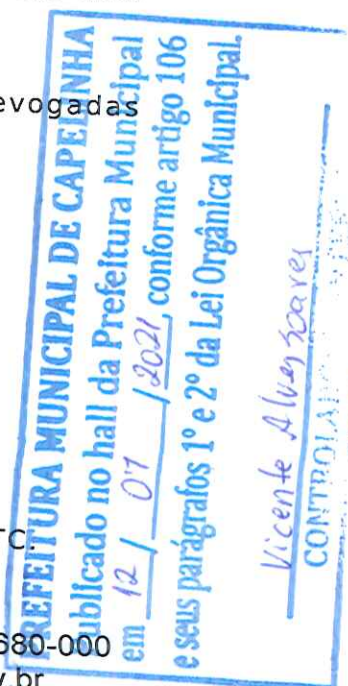 evogadas
PREFEITURA MUNICIPAL DE CAPELINHA
Publicado no hall da Prefeitura Municipal
em 12 / 07 / 2021, conforme artigo 106
e seus parágrafos 1º e 2º da Lei Orgânica Municipal.
Vicente Alves Soares
TC
680-000
v.br